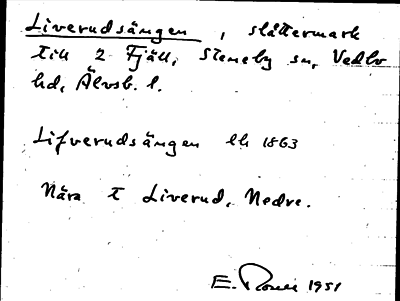 Liverudsängen, slåttermark
till 2 Fjäll, Steneby sn, Vedbo
hd, Älvsb. l.
Lifverudsängen lh 1863
Nära t Liverud, Nedre.
E. 1951